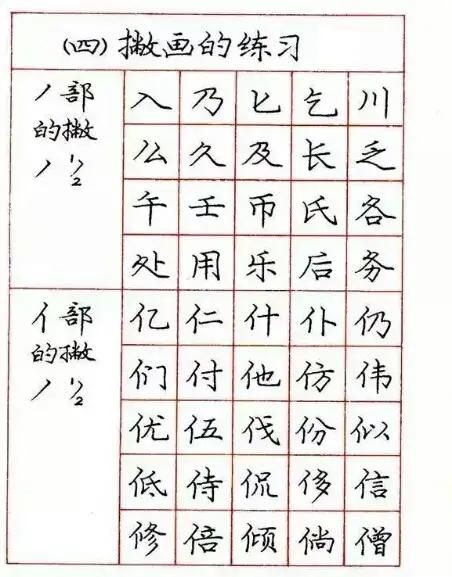 (四)撇画的练习
丿部的撇丿½
入乃匕乞川
么久及长乏
午壬币氏各
处用乐后务
亻部的撇丿½
亿仁什仆仍
们付他仿伟
优伍伐份似
低侍侃侈信
修倍倾倘僧